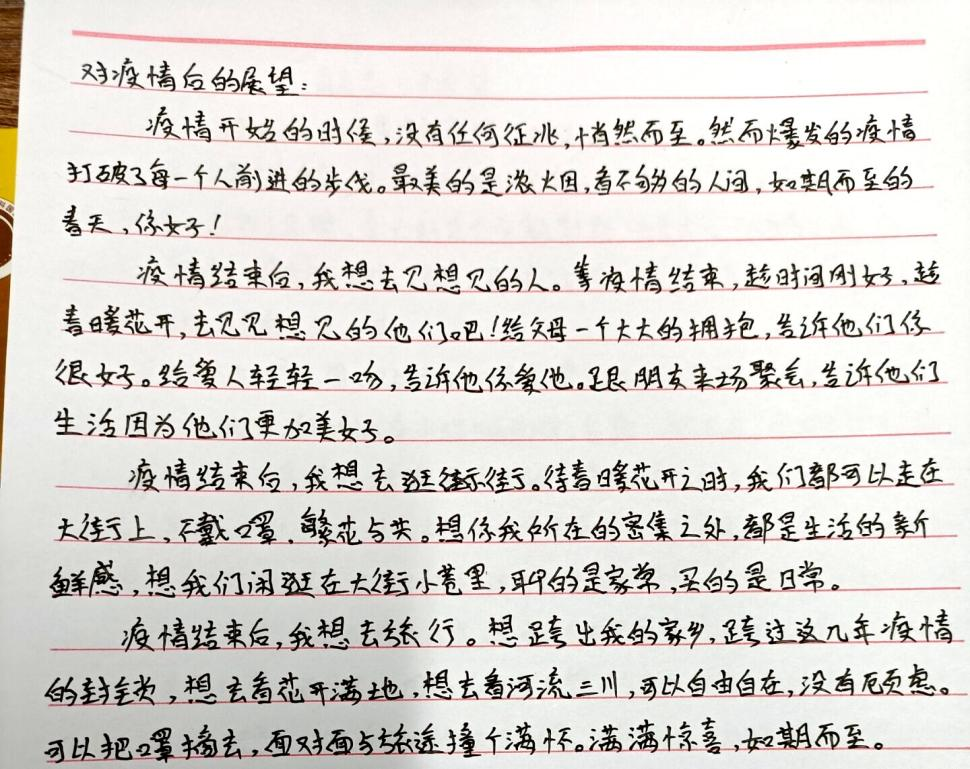 对疫情后的展望:
疫情开始的时候,没有任何征兆,悄然而至。然而爆发的疫情
打破了每一个人前进的步伐。最美的是浓火因,看不够的人间,如期而至的
春天,你好!
疫情结束后,我想去见想见的人。等疫情结束,趁时间刚好,趁
春日暖花开,去见见想见的他们吧!给父母一个大大的拥抱,告诉他们你
很好。给爱人轻轻一吻,告诉他你爱他。跟朋友来场聚会,告诉他们
生活因为他们更加美好。
疫情结束后,我想去逛街街。待春日暖花开之时,我们都可以走在
大街上,不戴口罩,繁花与共。想你我所在的密集之处,都是生活的新
鲜感,想我们闲逛在大街小巷里,聊的是家常,买的是日常。
疫情结束后,我想去旅行。想跨出我的家乡,跨过这几年疫情
的封锁,想去看花开满地,想去看河流三川,可以自由自在,没有顾虑。
可以把口罩摘去,面对面与旅途撞个满怀。满满惊喜,如期而至。